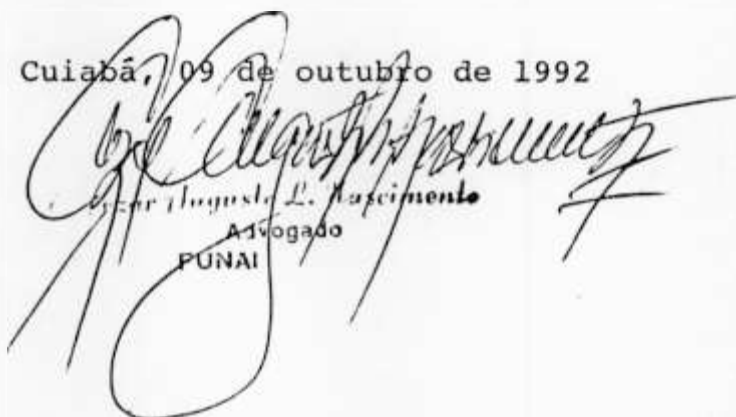 Cuiabá, 09 de outubro de 1992
Cezar Augusto L. Nascimento
Advogado
FUNAI